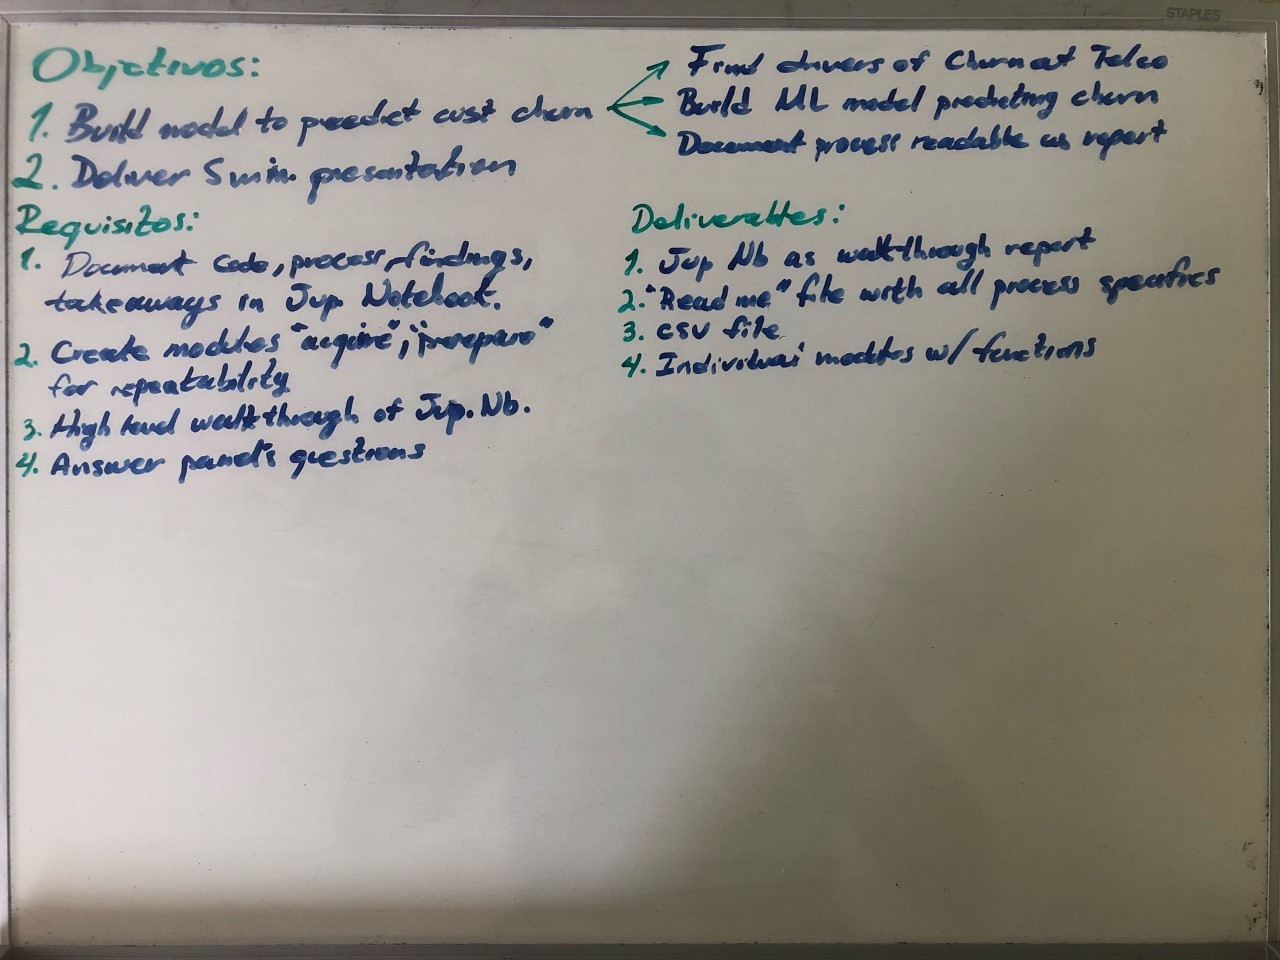 STAPLES
Objetivos:
1. Build model to predict cust churn
2. Deliver 5 min. presentation
Find drivers of Churn at Telco
Build ML model predicting churn
Document process readable as report
Requisitos:
1. Document code, process, findings,
takeaways in Jup Notebook.
2. Create modules "acquire", "prepare"
for repeatability
3. High level walkthrough of Jup. Nb.
4. Answer panel's questions
Deliverables:
1. Jup Nb as walkthrough report
2. "Read me" file with all process specifics
3. CSV file
4. Individual modules w/ functions